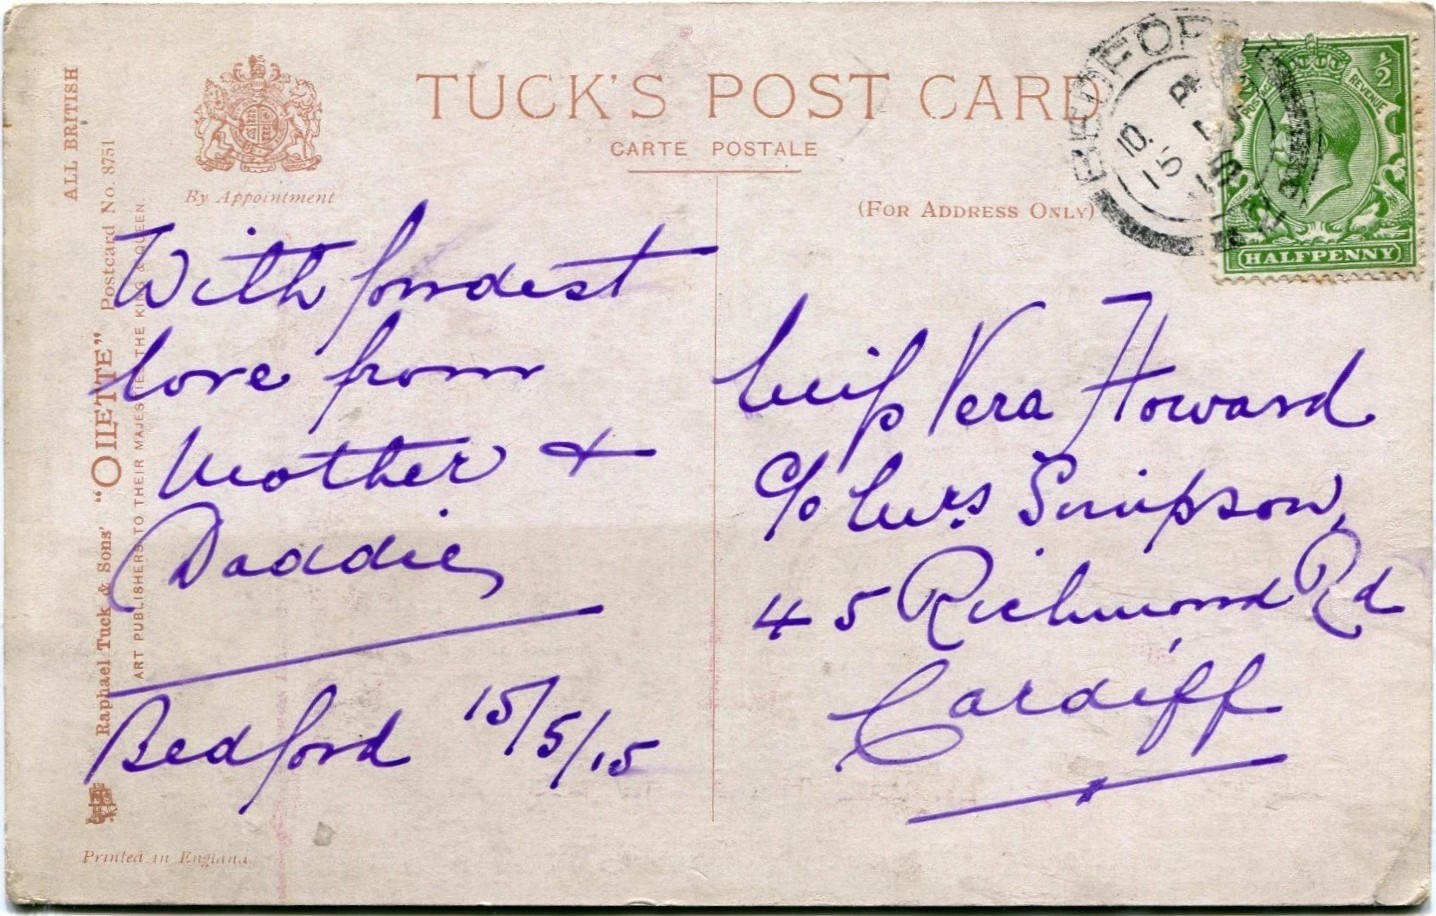 TUCK'S POST CARD
CARTE POSTALE
By Appointment
(FOR ADDRESS ONLY)
ALL BRITISH
Raphael Tuck & Sons' "OILETTE" Postcard No. 8751
ART PUBLISHERS TO THEIR MAJESTIES THE KING & QUEEN.
With fondest
love from
Mother &
Daddie
Bedford 15/5/15
Miss Vera Howard
c/o Mrs Simpson,
45 Richmond Rd
Cardiff
BEDFORD
POSTAGE REVENUE
½
HALFPENNY
Printed in England